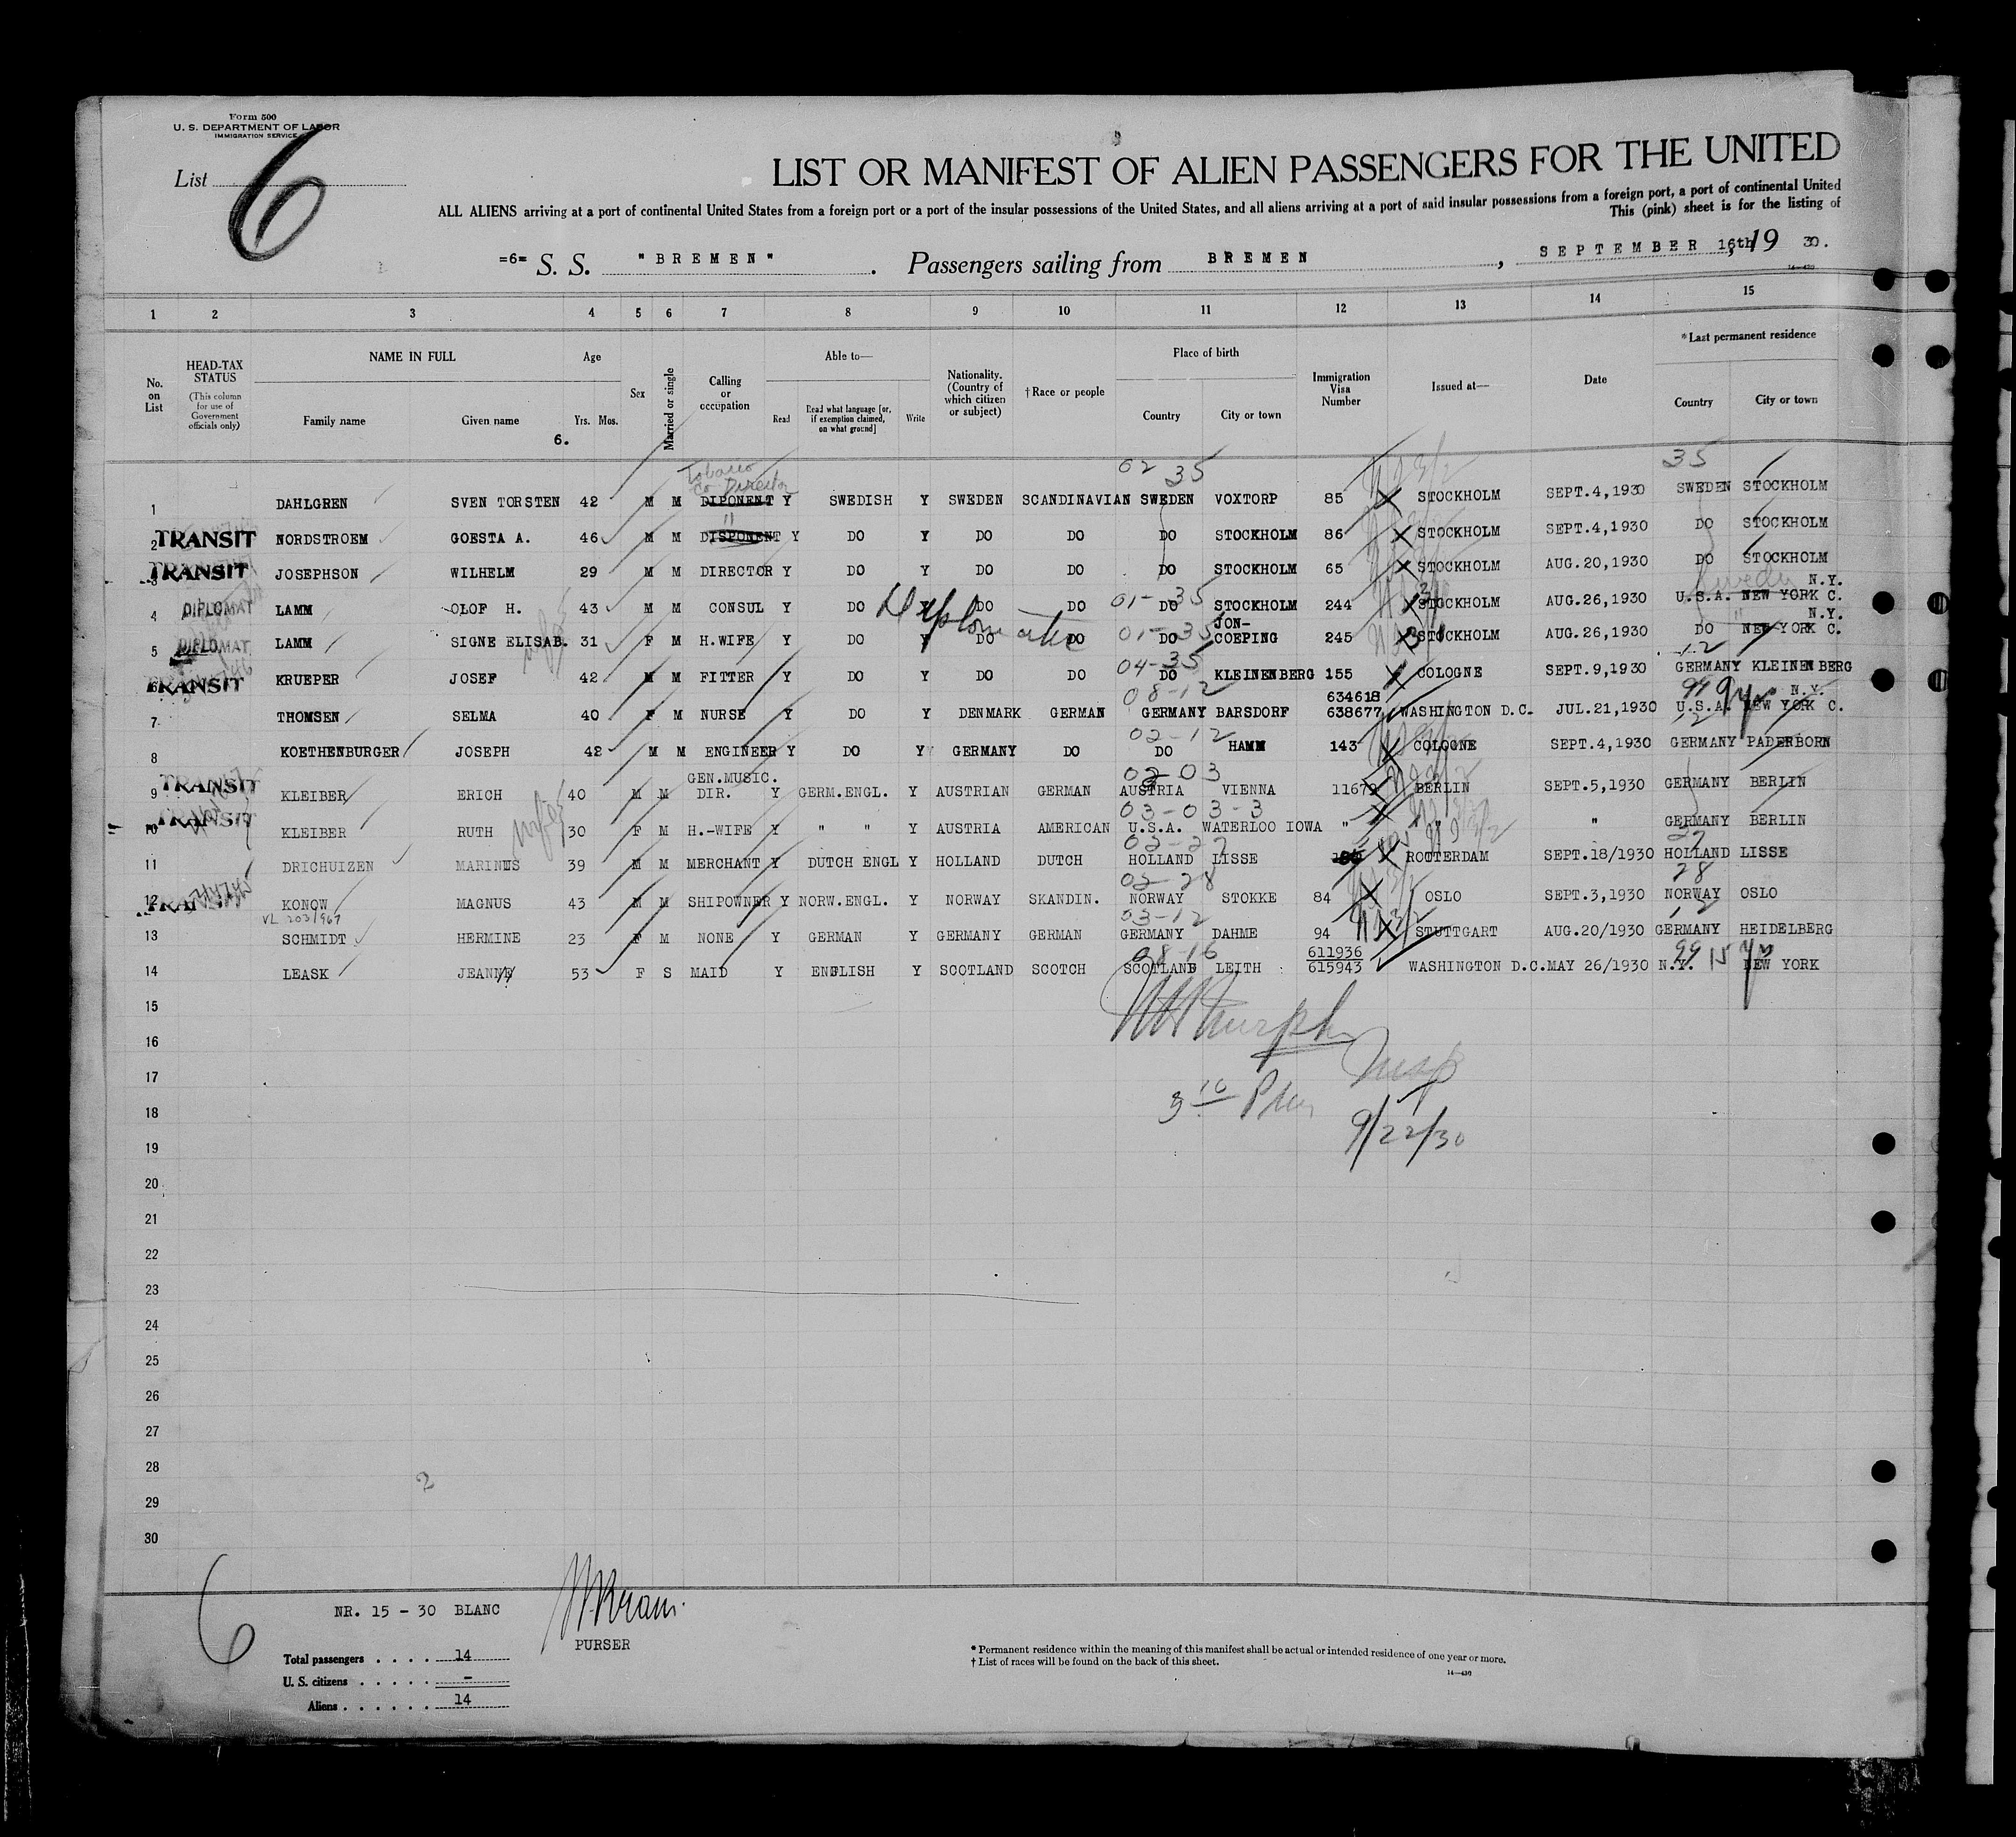 Form 500
U. S. DEPARTMENT OF LABOR
IMMIGRATION SERVICE
List 6
LIST OR MANIFEST OF ALIEN PASSENGERS FOR THE UNITED
ALL ALIENS arriving at a port of continental United States from a foreign port or a port of the insular possessions of the United States, and all aliens arriving at a port of said insular possessions from a foreign port, a port of continental United
This (pink) sheet is for the listing of
=6= S. S. "BREMEN". Passengers sailing from BREMEN, SEPTEMBER 16th, 19 30.
14—430
1 2 3 4 5 6 7 8 9 10 11 12 13 14 15
No. on List
HEAD-TAX STATUS (This column for use of Government officials only)
NAME IN FULL
Family name Given name
6.
Age
Yrs. Mos.
Sex
Married or single
Calling or occupation
Able to—
Read
Read what language [or, if exemption claimed, on what ground]
Write
Nationality. (Country of which citizen or subject)
†Race or people
Place of birth
Country City or town
Immigration Visa Number
Issued at—
Date
*Last permanent residence
Country City or town
02 35 35
Tobacco Co Director
1 DAHLGREN SVEN TORSTEN 42 M M DIPONENT Y SWEDISH Y SWEDEN SCANDINAVIAN SWEDEN VOXTORP 85 STOCKHOLM SEPT.4,1930 SWEDEN STOCKHOLM
2 TRANSIT NORDSTROEM GOESTA A. 46 M M DISPONENT Y DO Y DO DO DO STOCKHOLM 86 STOCKHOLM SEPT.4,1930 DO STOCKHOLM
3 TRANSIT JOSEPHSON WILHELM 29 M M DIRECTOR Y DO Y DO DO DO STOCKHOLM 65 STOCKHOLM AUG.20,1930 DO STOCKHOLM
Sweden N.Y.
4 DIPLOMAT LAMM OLOF H. 43 M M CONSUL Y DO Y DO DO 01-35 DO STOCKHOLM 244 STOCKHOLM AUG.26,1930 U.S.A. NEW YORK C.
Diplomatic
JON- N.Y.
5 DIPLOMAT LAMM SIGNE ELISAB. 31 F M H.WIFE Y DO Y DO DO 01-35 DO COEPING 245 STOCKHOLM AUG.26,1930 DO NEW YORK C.
04-35 12
6 TRANSIT KRUEPER JOSEF 42 M M FITTER Y DO Y DO DO DO KLEINENBERG 155 COLOGNE SEPT.9,1930 GERMANY KLEINENBERG
08-12 634618 99 9 yrs N.Y.
7 THOMSEN SELMA 40 F M NURSE Y DO Y DENMARK GERMAN GERMANY BARSDORF 638677 WASHINGTON D.C. JUL.21,1930 U.S.A. NEW YORK C.
02-12 12
8 KOETHENBURGER JOSEPH 42 M M ENGINEER Y DO Y GERMANY DO DO HAMM 143 COLOGNE SEPT.4,1930 GERMANY PADERBORN
GEN.MUSIC. 02-03
9 TRANSIT KLEIBER ERICH 40 M M DIR. Y GERM.ENGL. Y AUSTRIAN GERMAN AUSTRIA VIENNA 11679 BERLIN SEPT.5,1930 GERMANY BERLIN
03-03-3
10 TRANSIT KLEIBER RUTH 30 F M H.-WIFE Y " " Y AUSTRIA AMERICAN U.S.A. WATERLOO IOWA " " " GERMANY BERLIN
02-27 27
11 DRICHUIZEN MARINUS 39 M M MERCHANT Y DUTCH ENGL Y HOLLAND DUTCH HOLLAND LISSE ROTTERDAM SEPT.18/1930 HOLLAND LISSE
02-28 28
12 TRANSIT KONOW MAGNUS 43 M M SHIPOWNER Y NORW.ENGL. Y NORWAY SKANDIN. NORWAY STOKKE 84 OSLO SEPT.3,1930 NORWAY OSLO
VL 203/967 03-12 12
13 SCHMIDT HERMINE 23 F M NONE Y GERMAN Y GERMANY GERMAN GERMANY DAHME 94 STUTTGART AUG.20/1930 GERMANY HEIDELBERG
08-16 611936 99 15 yrs
14 LEASK JEANNY 53 F S MAID Y ENGLISH Y SCOTLAND SCOTCH SCOTLAND LEITH 615943 WASHINGTON D.C. MAY 26/1930 N.Y. NEW YORK
15
16
Murphy
17
Insp
18
3 10 Pm
19
9/22/30
20
21
22
23
24
25
26
27
28
2
29
30
6
NR. 15 - 30 BLANC
PURSER
Total passengers . . . . 14
U. S. citizens . . . . . -
Aliens . . . . . . 14
* Permanent residence within the meaning of this manifest shall be actual or intended residence of one year or more.
† List of races will be found on the back of this sheet.
14—430